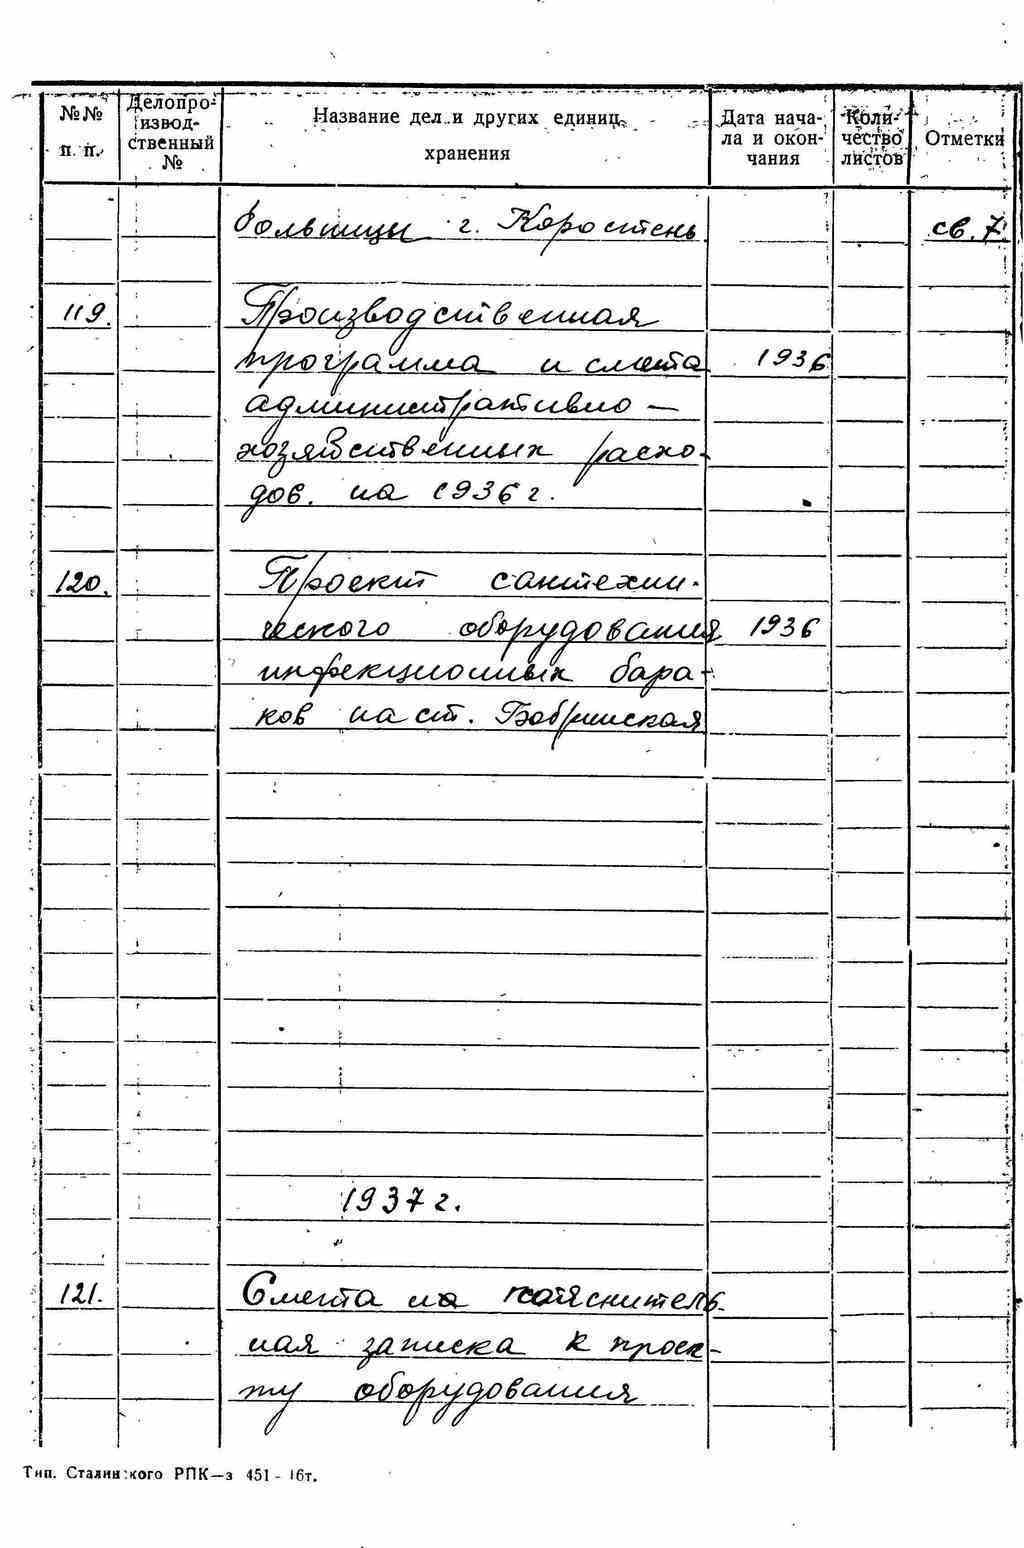 №№ п. п.
Делопро-
извод-
ственный
№
Название дел и других единиц
хранения
Дата нача-
ла и окон-
чания
Коли-
чество
листов
Отметки
больницы г. Коростень св. 7.
119. Производственная
программа и смета 1936
административно —
хозяйственных расхо-
дов. на 1936 г.
120. Проект сантехни-
ческого оборудования 1936
инфекционных бара-
ков на ст. Бобринская
1937 г.
121. Смета на пояснитель-
ная записка к проек-
ту оборудования
Тип. Сталинского РПК—з 451 - 16т.